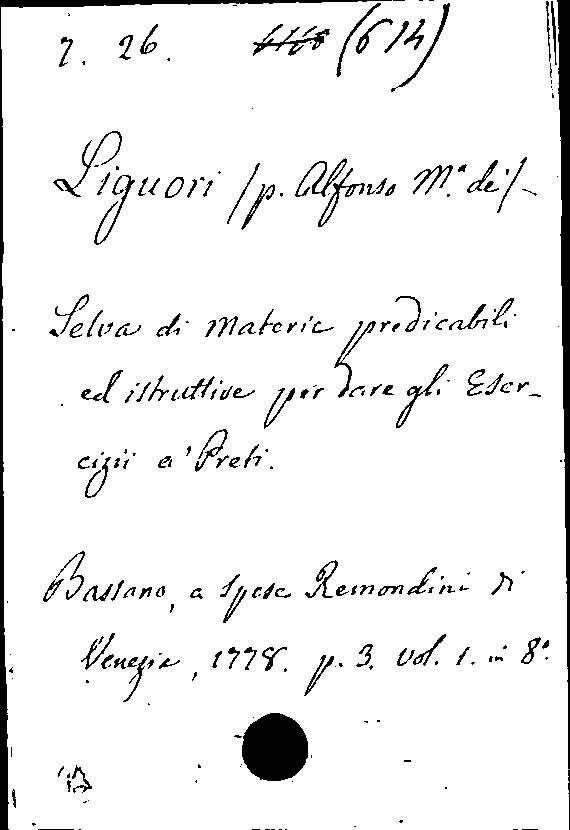 7. 26. (614)
Liguori /p. Alfonso M.ª de'/-
Selva di materie predicabili
ed istruttive per dare gli Eser-
cizii a' Preti.
Bassano, a spese Remondini di
Venezia, 1778. p. 3. vol. 1. in 8º.